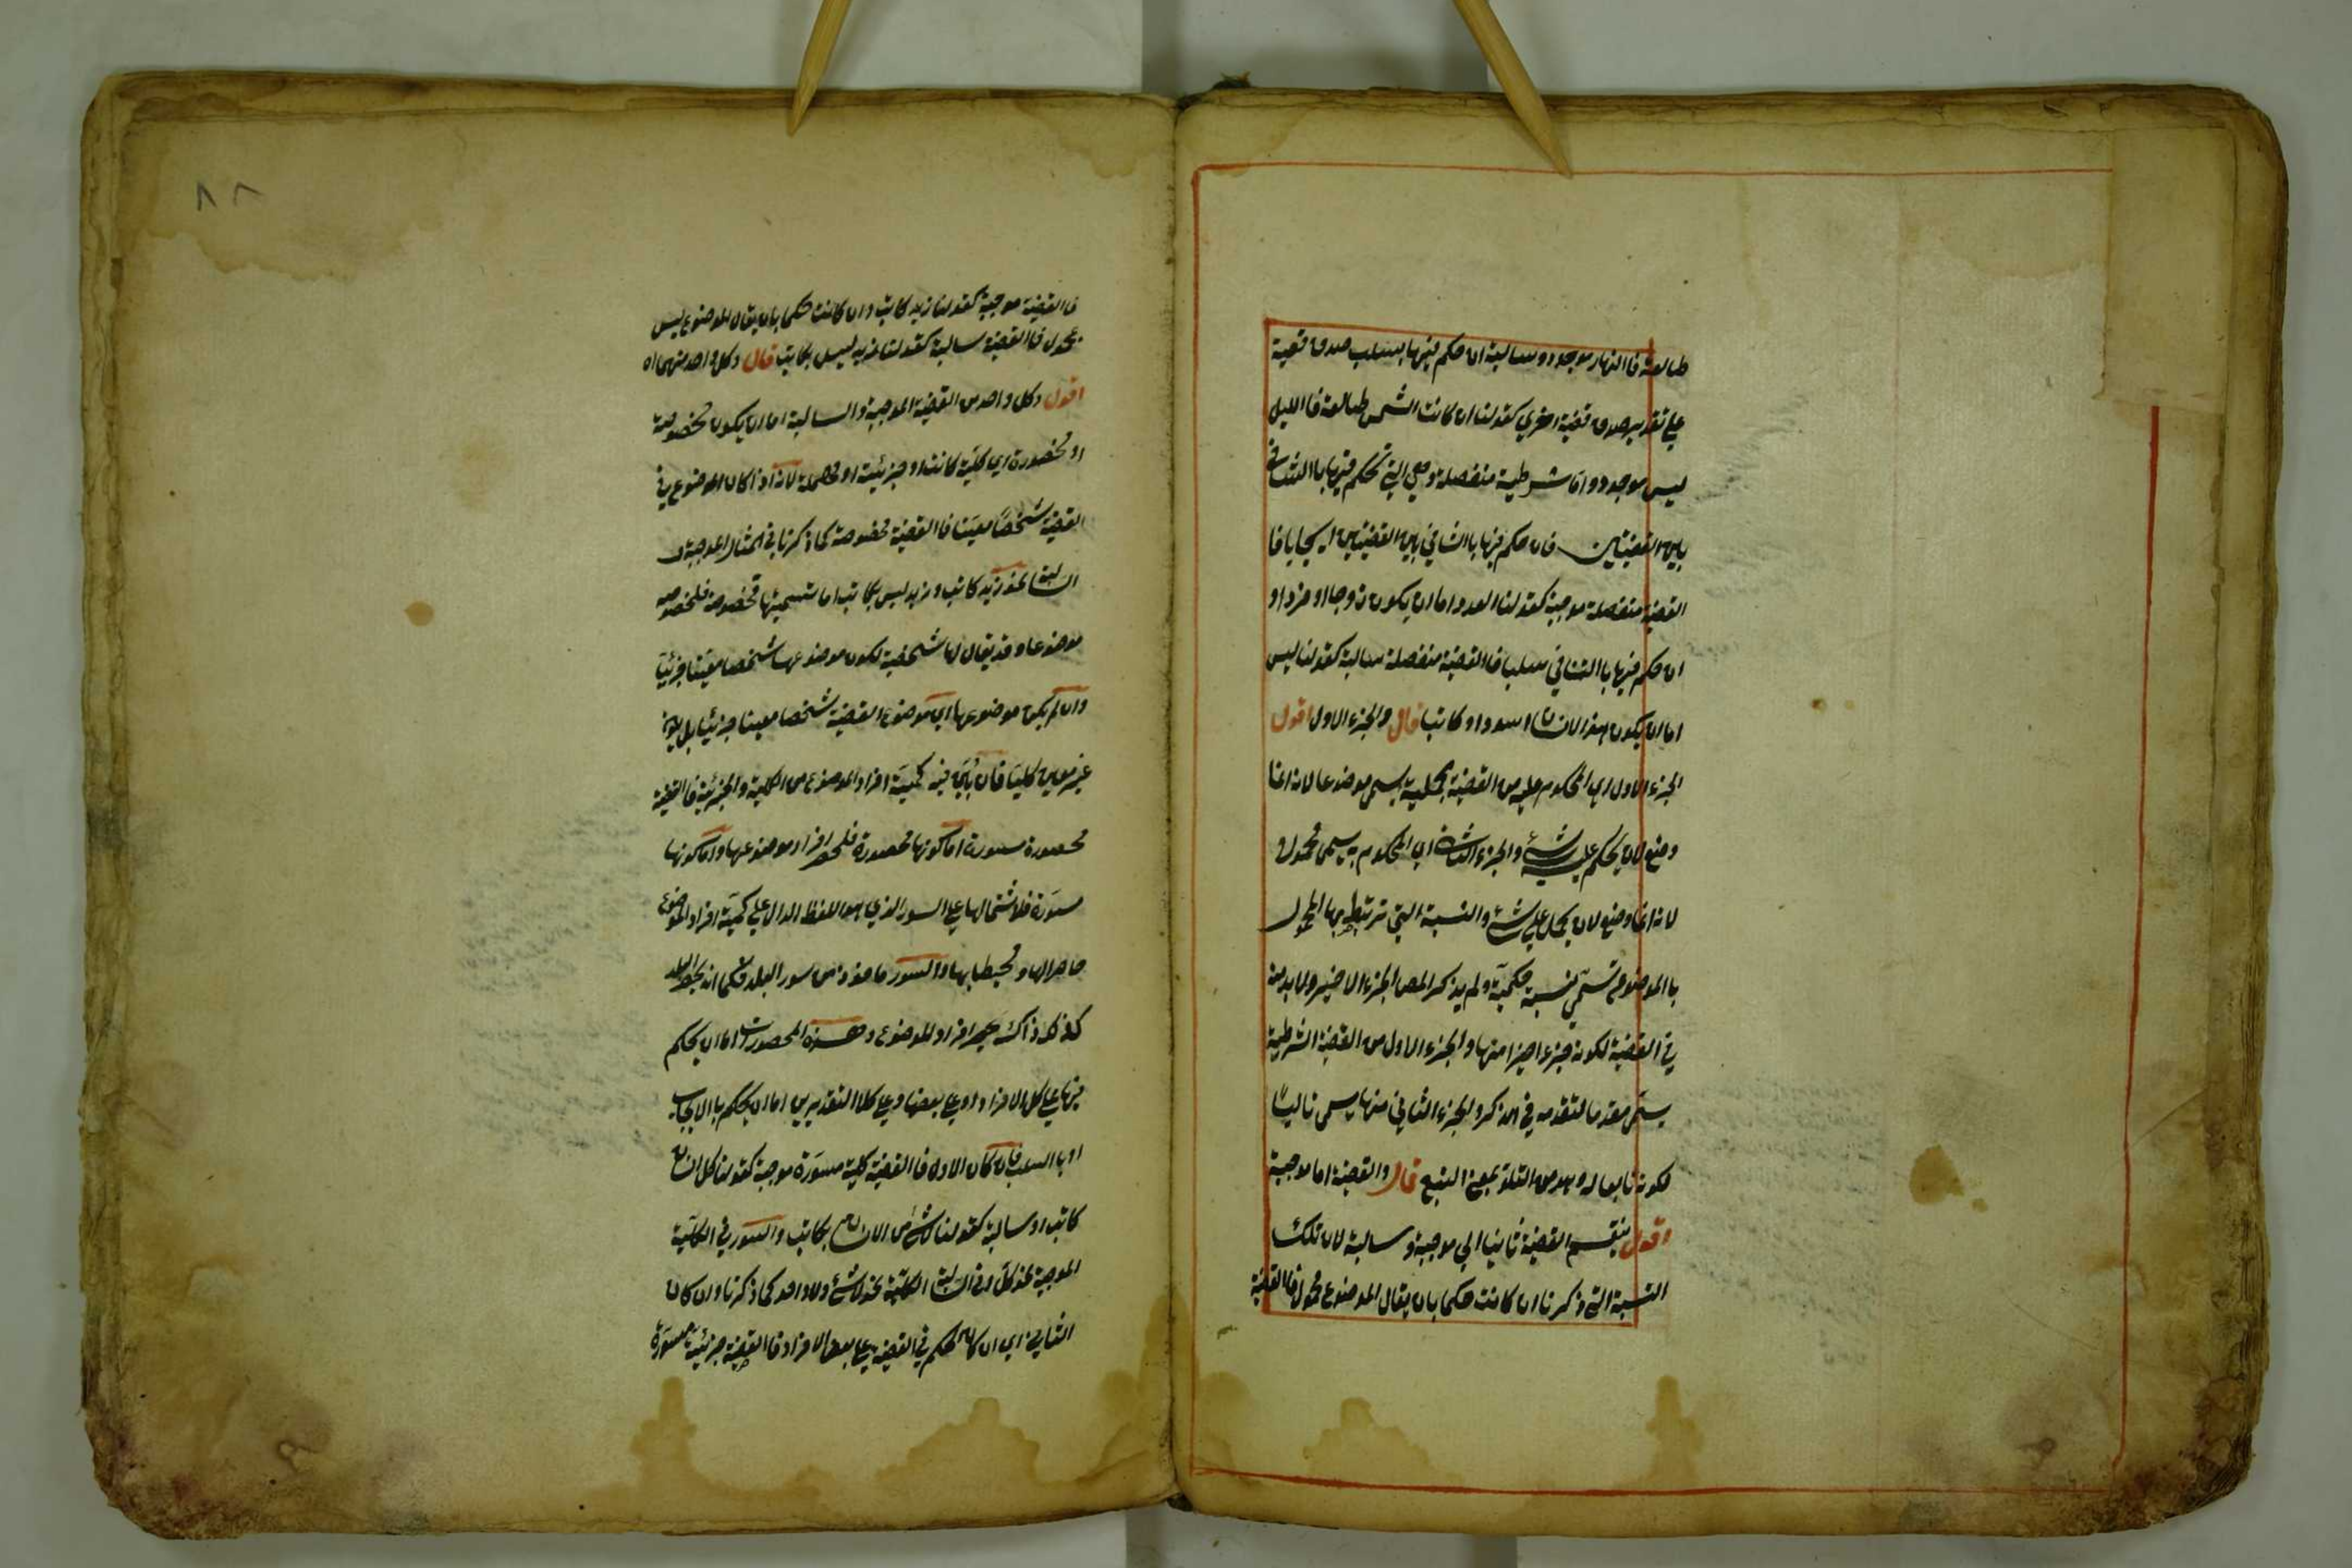 طالعة فاالنهار موجود وسالبة ان حكم فيها بسلب صدق قضية
علي تقدير صدق قضية اخري كقولنا ان كانت الشمس طالعة فاالليل
ليس موجود واما شرطية منفصلة وهي التي تحكم فيها باالتنافي
بين القضيتين فان حكم فيها باالتنافي بين القضيتين ايجابا فا
القضية منفصلة موجبة كقولنا العدد اما ان يكون زوجا او فردا و
ان حكم فيها باالتنافي سلبا فاالقضية منفصلة سالبة كقولنا ليس
اما ان يكون هذا الانسان اسود او كاتبا قال والجزء الاول اقول
الجزء الاول اي المحكوم عليه من القضية الحملية يسمي موضوعا لانه انما
وضع لان يحكم عليه بشئ والجزء الثاني اي المحكوم به يسمي محمولا
لانه انما وضع لان يحمل علي شئ والنسبة التي ترتبط بها المحمول
باالموضوع تسمي نسبة حكمية ولم يذكر المص الجزء الاخير ولا بد منه
في القضية لكونه جزء اخيرا منها والجزء الاول من القضية الشرطية
يسمي مقدما لتقدمه في الذكر والجزء الثاني منها يسمي تاليا
لكونه تابعا له وهو من التلو بمعني التبع قال والقضية اما موجبة
اقول ينقسم القضية ثانيا الي موجبة وسالبة لان تلك
النسبة التي ذكرنا ان كانت حكما بان يقال الموضوع محمول فاالقضية
٨٨
فاالقضية موجبة كقولنا زيد كاتب وان كانت حكما بان يقال الموضوع ليس
بمحمول فاالقضية سالبة كقولنا زيد ليس بكاتب قال وكل واحد منهما اه
اقول وكل واحد من القضية الموجبة والسالبة اما ان يكون مخصوصة
او محصورة اي كلية كانت او جزئية او مهملة لانه اذا كان الموضوع في
القضية شخصا معينا فاالقضية مخصوصة كما ذكرنا في المثال الموجبة و
السالبة نحو زيد كاتب وزيد ليس بكاتب اما تسميتها مخصوصة فلخصوصية
موضوعها وقد يقال لها شخصية لكون موضوعها شخصا معينا جزئيا
وان لم يكن موضوعها اي موضوع القضية شخصا معينا جزئيا بل يكون
غير معين كليا فان بين فيه كمية افراد الموضوع من الكلية والجزئية فاالقضية
محصورة مسورة اما كونها محصورة فلحصر افراد موضوعها واما كونها
مسورة فلاشتمالها علي السور الذي هو اللفظ الدال علي كمية افراد الموضوع
حاصرا لها ومحيطا بها والسور ماخوذ من سور البلد فكما انه يحيط البلد
كذلك ذاك يحصر افراد الموضوع وهذه المحصورات اما ان يحكم
فيها علي كل الافراد او علي بعضها وعلي كلا التقديرين اما ان يحكم باالايجاب
او باالسلب فان كان الاول فاالقضية كلية مسورة موجبة كقولنا كل انسان
كاتب او سالبة كقولنا لا شئ من الانسان بكاتب والسور في الكلية
الموجبة نحو كل وفي السالبة الكلية نحو لا شئ ولا واحد كما ذكرنا وان كان
الثاني اي ان كان الحكم في القضية علي بعض الافراد فاالقضية جزئية مسورة